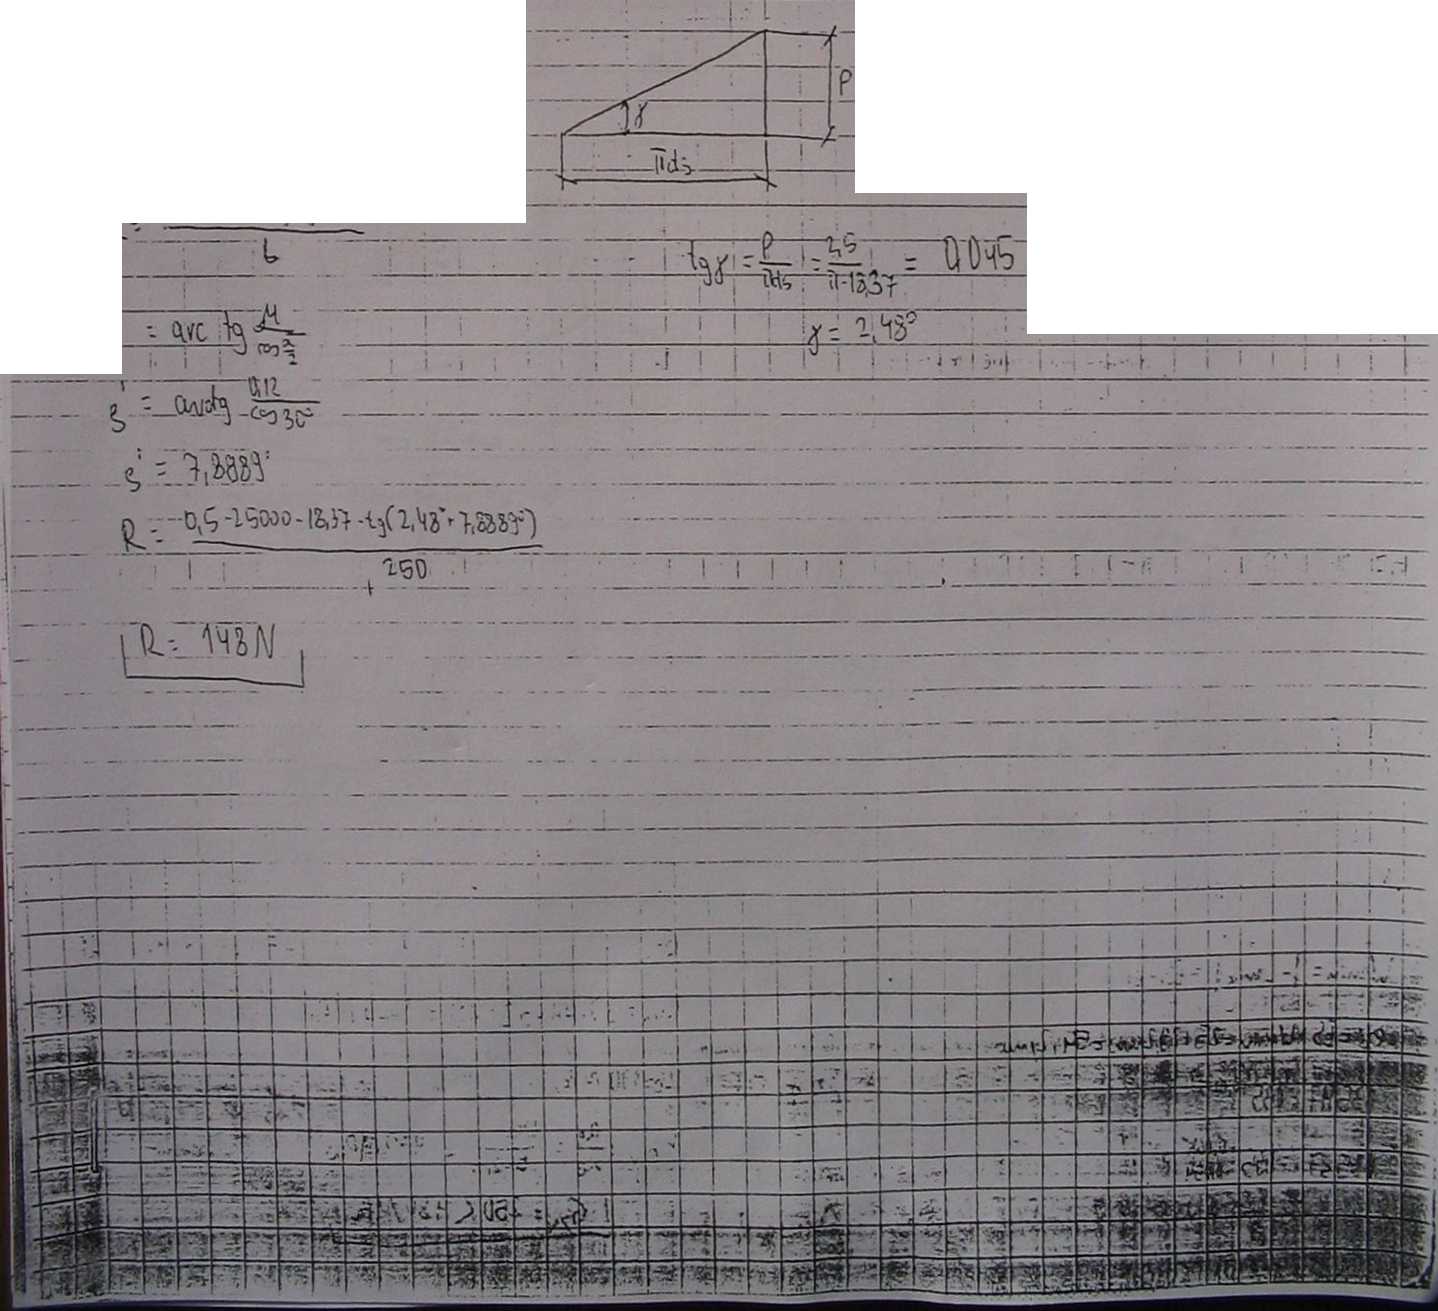 P
γ
πds
b
tgγ = P/πds = 2,5/π·18,37 = 0,045
γ = 2,48°
= arc tg μ/cos α/2
ρ' = arctg 0,12/cos30°
ρ' = 7,8889°
R = 0,5·25000·18,37·tg(2,48°+7,8889°)/250
R = 148N